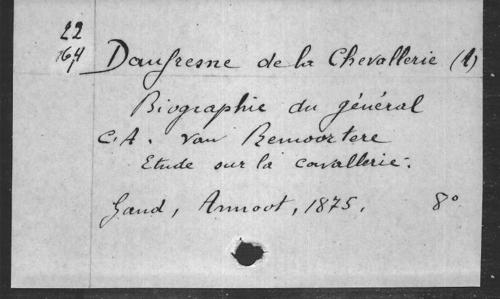 22
164
Daufresne de la Chevallerie (A)
Biographie du général
C. A. van Remoortere
Etude sur la cavallerie.
Gand, Annoot, 1875, 8°